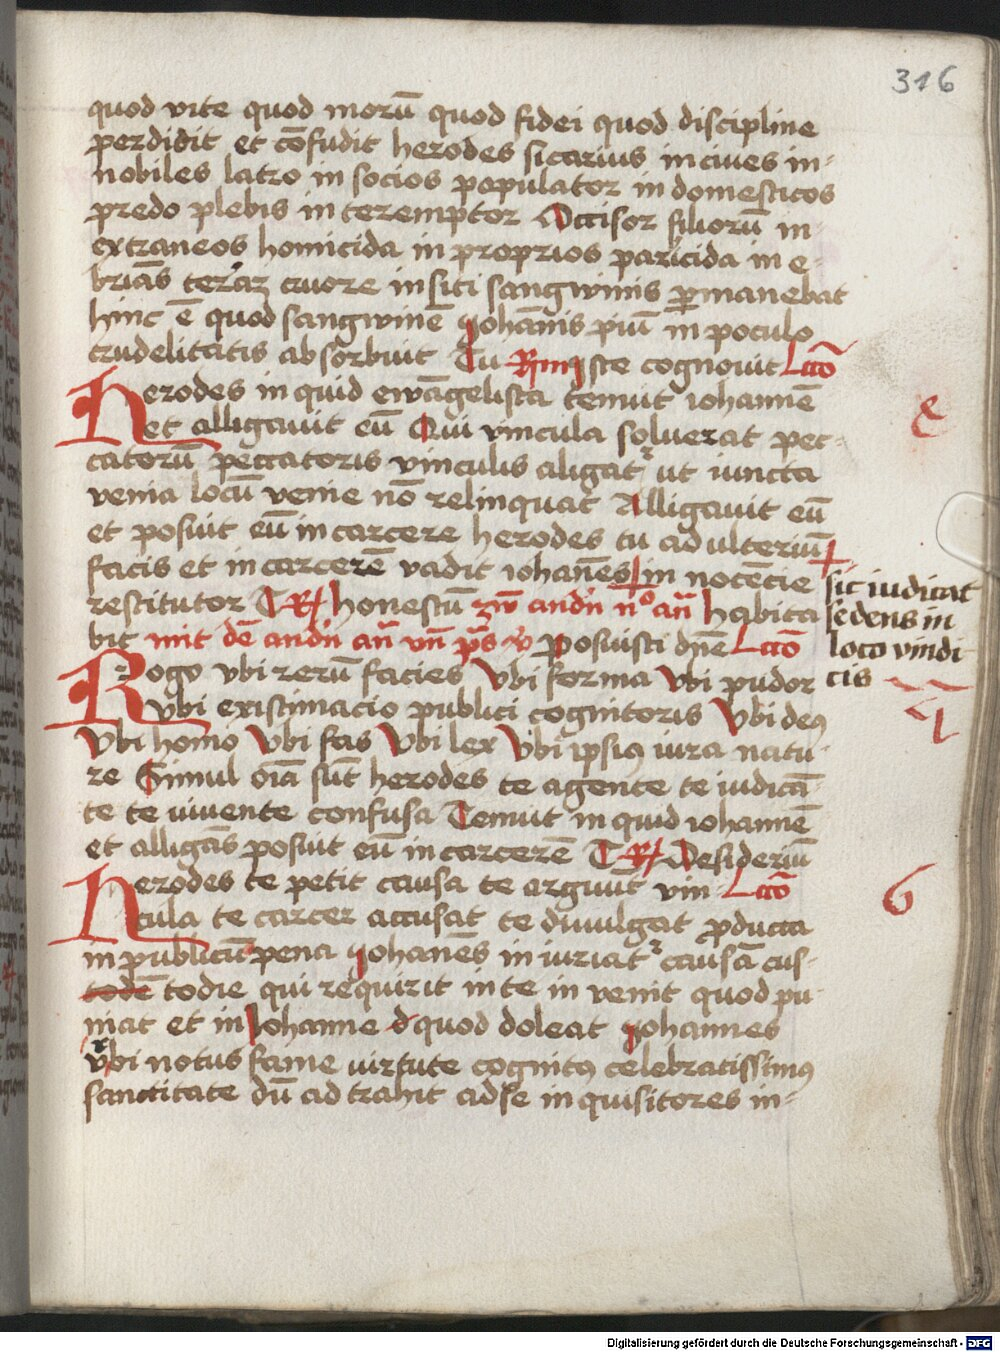 316
quod vite quod morū quod fidei quod discipline
perdidit et cōfudit herodes sicarius in ciues in=
nobiles latro in socios populator in domesticos
predo plebis in teremptor Occisor filiorū in
extraneos homicida in proprios paricida in e-
briās cruore in siti sangwinis ꝑmanebat
hinc ē quod sangwinē iohānis piū in poculo
crudelitatis absorbuit Tu iste cognouit Lcō
Herodes in quid ewāgelista tenuit iohannē
et alligauit eū Qui vincula soluerat pec-
catorū peccatoris vinculis aligatr ut iuncta
venia locū venie nō relinquat Alligauit eū
et posuit eū in carcere herodes tu adulteriū
facis et in carcerē vadit iohanēs in nocētie
restitutor honestū habita
bit posuisti dn̄e Lcō
Rogo vbi rerū facies Vbi forma Vbi pudor
vbi existimacio publici cognitoris Vbi deꝰ
Vbi homo Vbi fas Vbi lex Vbi ipsiꝰ iura natu-
re Simul oīa sūt herodes te agente te iudicā-
te te viuente confusa Tenuit in quid iohannē
et alligās posuit eū in carcerē Desideriū
Herodes te petit causa te arguūt vin- Lcō
cula te carcer accusat te diuulgat ꝓducta
in publicū pena iohanēs in iuriatr causā cus-
todē todie qui requirit in te in venit quod pu-
niat et in Iohanne quod doleat iohannes
vbi notus fame virtute cognitꝰ celebratissimꝰ
sanctitate dū ad trahit ad se in quisitores in=
sic iudicat
sedens in
loco vindi
cis
6
Digitalisierung gefördert durch die Deutsche Forschungsgemeinschaft - DFG